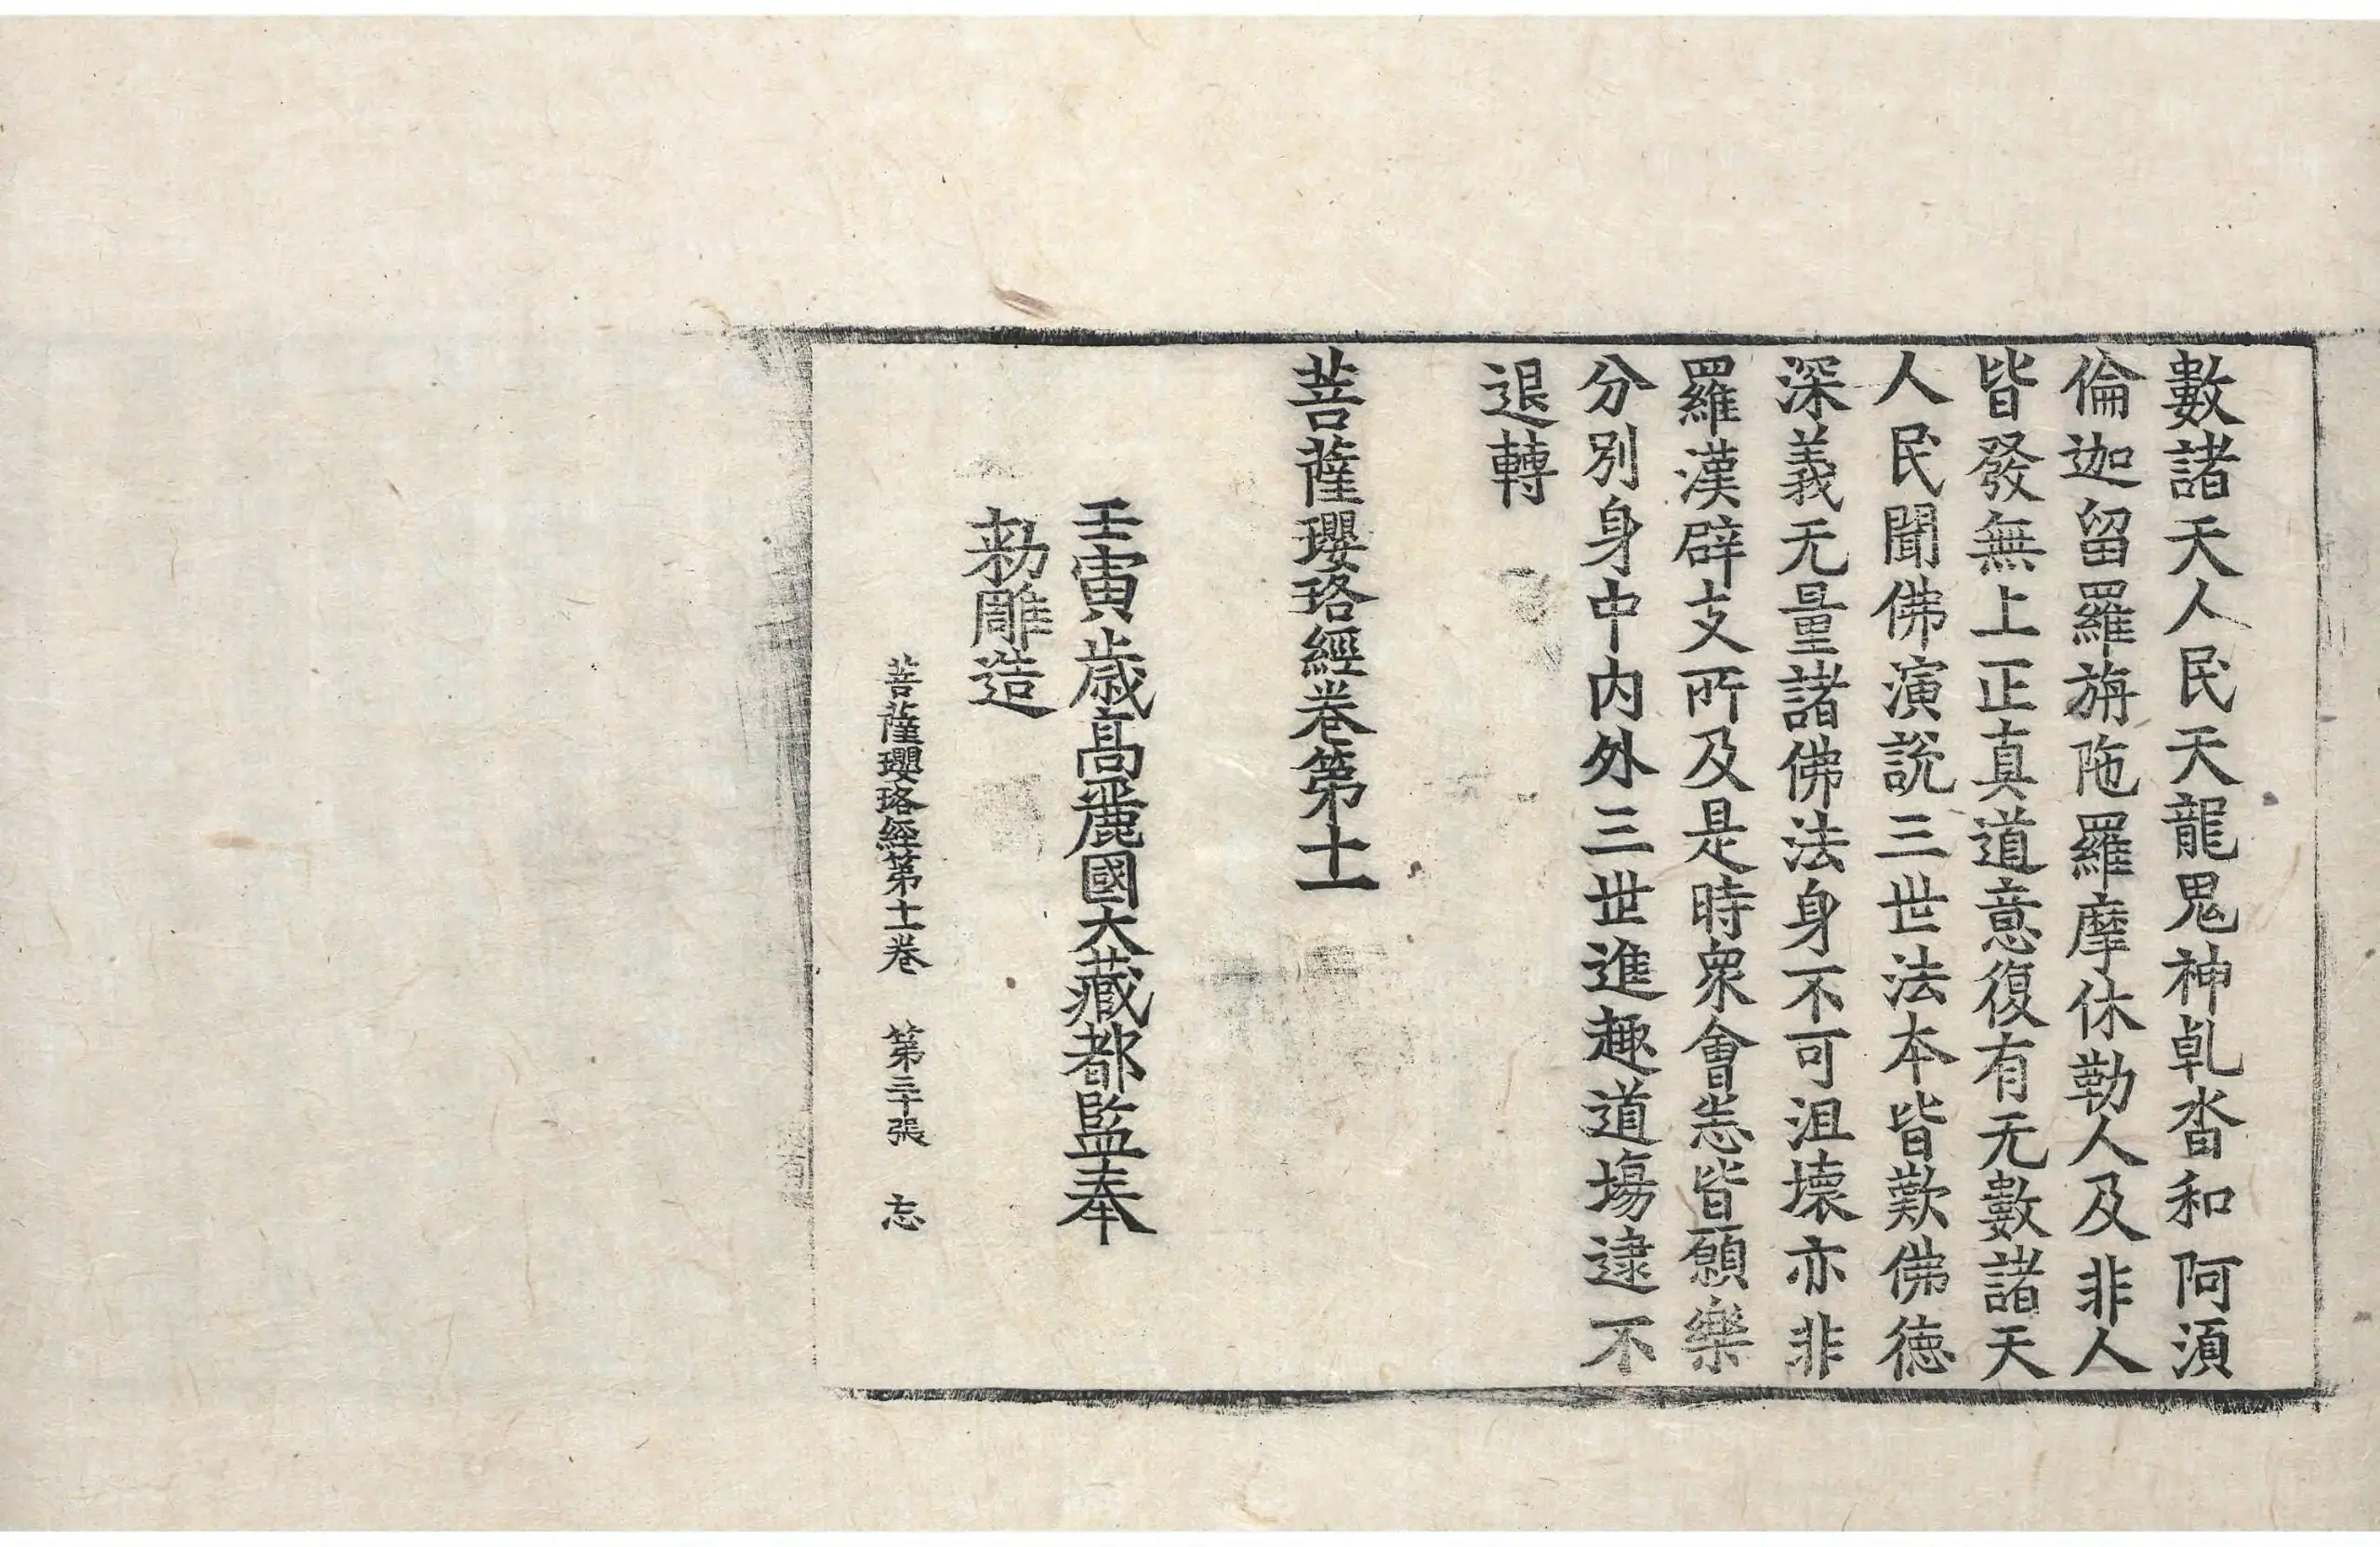 數諸天人民天龍鬼神乹沓和阿須
倫迦留羅旃陁羅摩休勒人及非人
皆發無上正真道意復有无數諸天
人民聞佛演說三世法本皆歎佛徳
深義无量諸佛法身不可沮壞亦非
羅漢辟支所及是時衆會悉皆願樂
分別身中内外三世進趣道場逮不
退轉
菩薩瓔珞經卷第十一
壬寅歲高麗國大藏都監奉
勑雕造
菩薩瓔珞經第十一卷 第三十張 忘